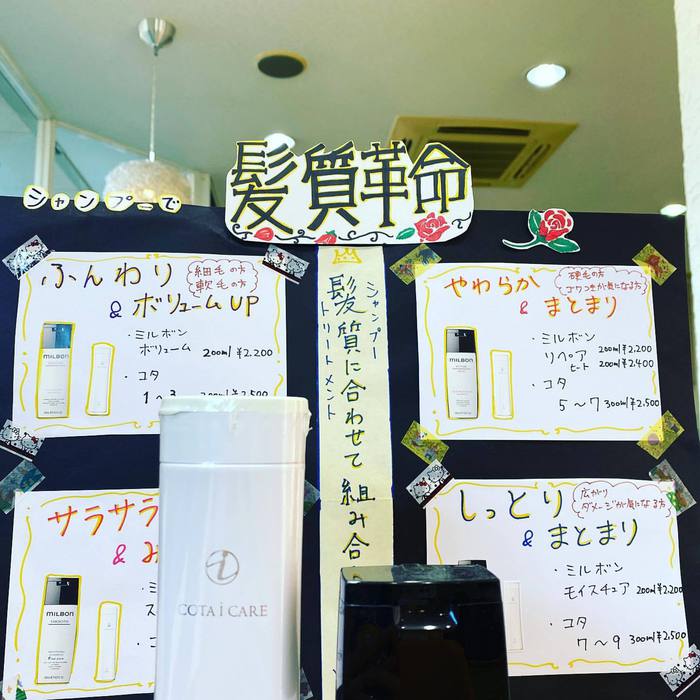 シャンプーで
髪質革命
ふんわり
細毛の方
軟毛の方
& ボリュームUP
・ミルボン
ボリューム 200ml ¥2.200
・コタ
1〜3 ¥2.500
MILBON
シャンプー
トリートメント
髪質に合わせて組み合
やわらか
硬毛の方
ゴワつきが気になる方
& まとまり
・ミルボン
リペア 200ml ¥2.200
ヒート 200ml ¥2.400
・コタ
5〜7 300ml ¥2.500
MILBON
サラサラ
&
MILBON
SMOOTH
しっとり
広がり
ダメージが気になる方
& まとまり
・ミルボン
モイスチュア 200ml ¥2.200
・コタ
7〜9 300ml ¥2.500
COTA i CARE